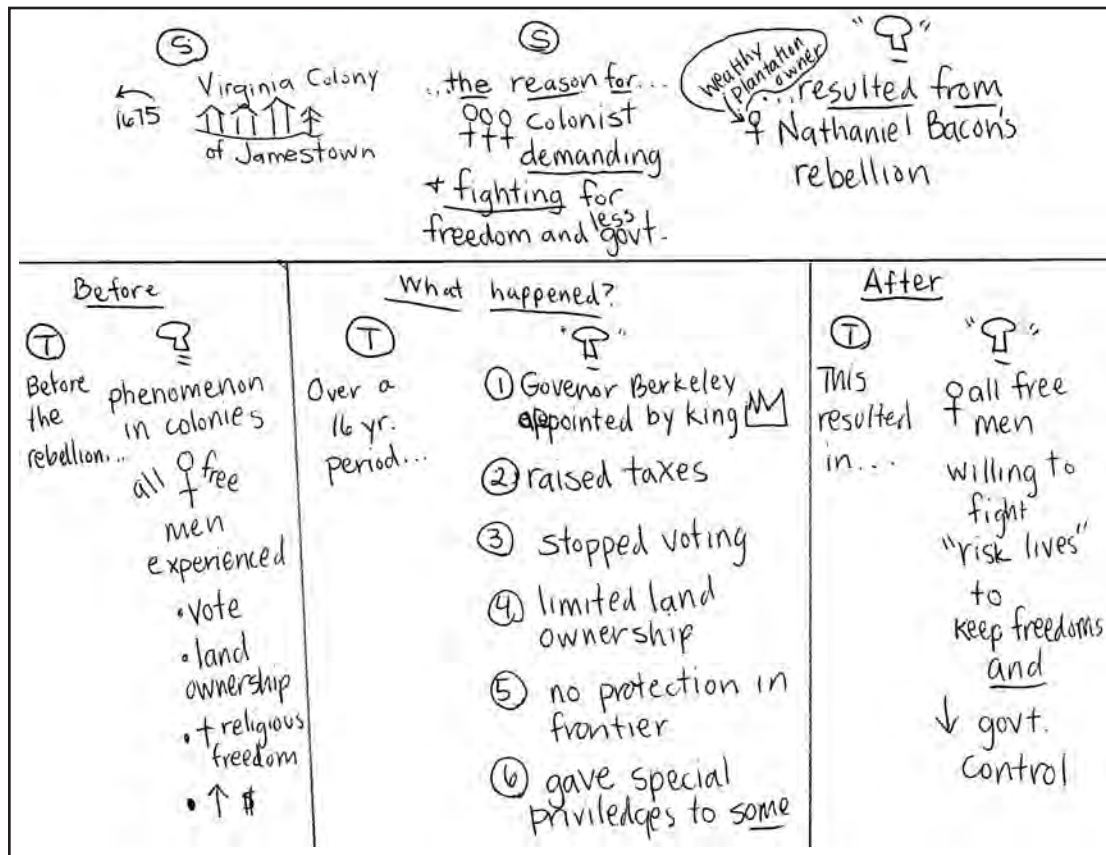 S
Virginia Colony
1675
of Jamestown
S
...the reason for...
colonist
demanding
+ fighting for
freedom and less govt.
wealthy
plantation
owner
" "
...resulted from
Nathaniel Bacon's
rebellion
Before
T
Before
the
rebellion...
phenomenon
in colonies
all free
men
experienced
• vote
• land
ownership
• + religious
freedom
• ↑ $
What happened?
T
Over a
16 yr.
period...
" "
① Govenor Berkeley
appointed by king
② raised taxes
③ stopped voting
④ limited land
ownership
⑤ no protection in
frontier
⑥ gave special
priviledges to some
After
T
This
resulted
in...
" "
all free
men
willing to
fight
"risk lives"
to
keep freedoms
and
↓ govt.
control